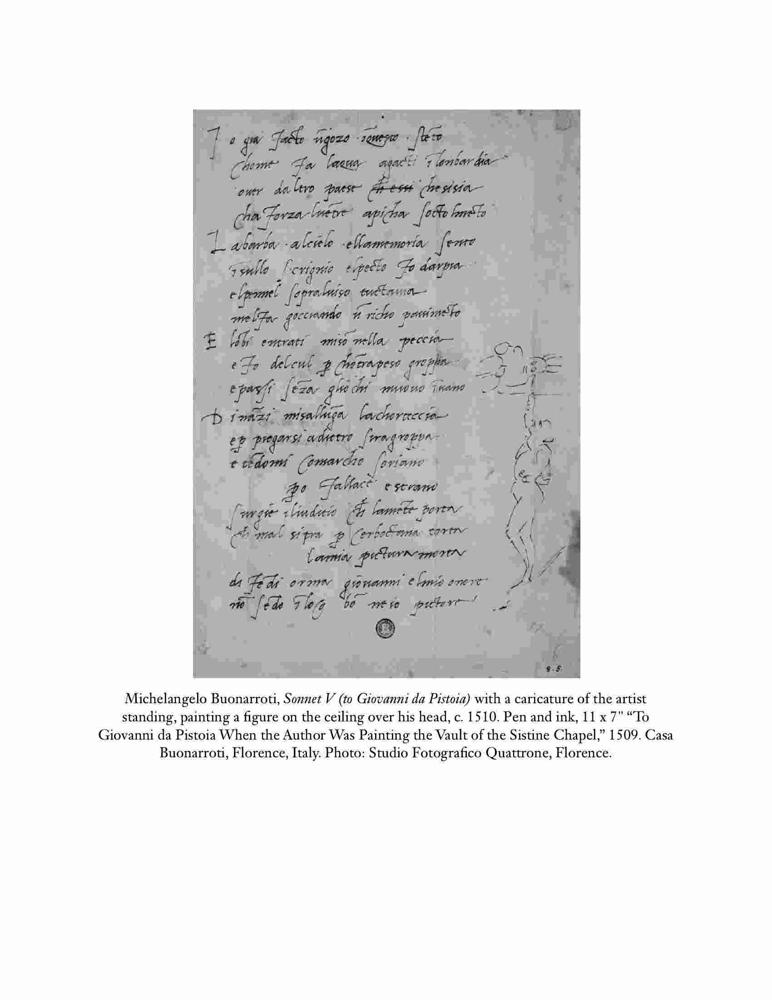 I o gia facto ũgozo ĩquesto steto
chome fa lacqua agacti ĩ lonbardia
over daltro paese che essi chesisia
cha forza luẽtre apicha socto lmẽto
L abarba alcielo ellamemoria sento
ĩsullo scrignio elpecto fo darpia
elpennel sopraluiso tuctauia
melfa gocciando ũ richo pauimẽto
E lõbi entrati misõ nella peccia
e fo delcul p chõtrapeso groppa
epassi sẽza gliochi muouo ĩuano
D inãzi misallũga lachorteccia
e p piegarsi adietro siragroppa
e tẽdomi comarcho soriano
po fallace e strano
surgie iliuditio ch lamẽte porta
ch mal sitra p cerboctana torta
lamia pictura morta
di fedi orma giouanni elmio onore
nõ sẽdo ĩ log bõ ne io pictore
Michelangelo Buonarroti, Sonnet V (to Giovanni da Pistoia) with a caricature of the artist
standing, painting a figure on the ceiling over his head, c. 1510. Pen and ink, 11 x 7" “To
Giovanni da Pistoia When the Author Was Painting the Vault of the Sistine Chapel,” 1509. Casa
Buonarroti, Florence, Italy. Photo: Studio Fotografico Quattrone, Florence.